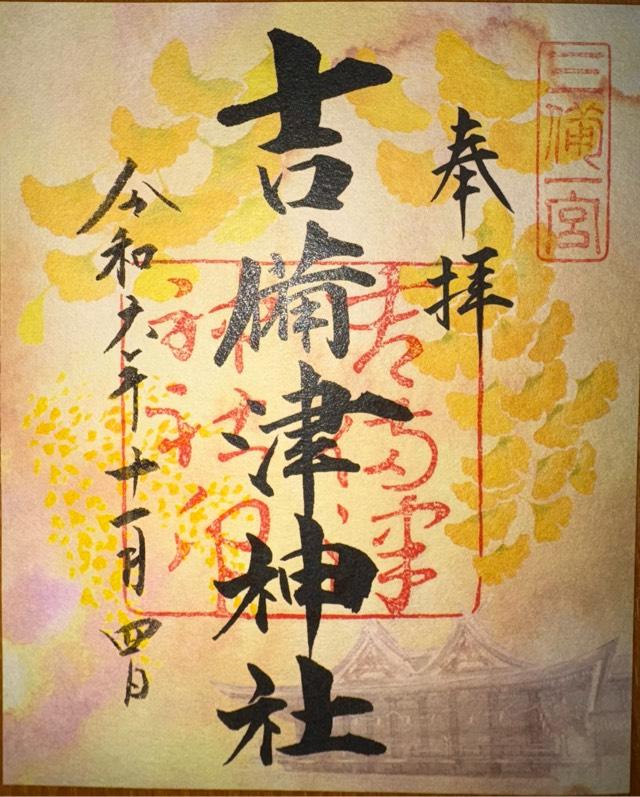 三備一宮
奉拝
吉備津神社
吉備津
神社印
令和六年十一月四日